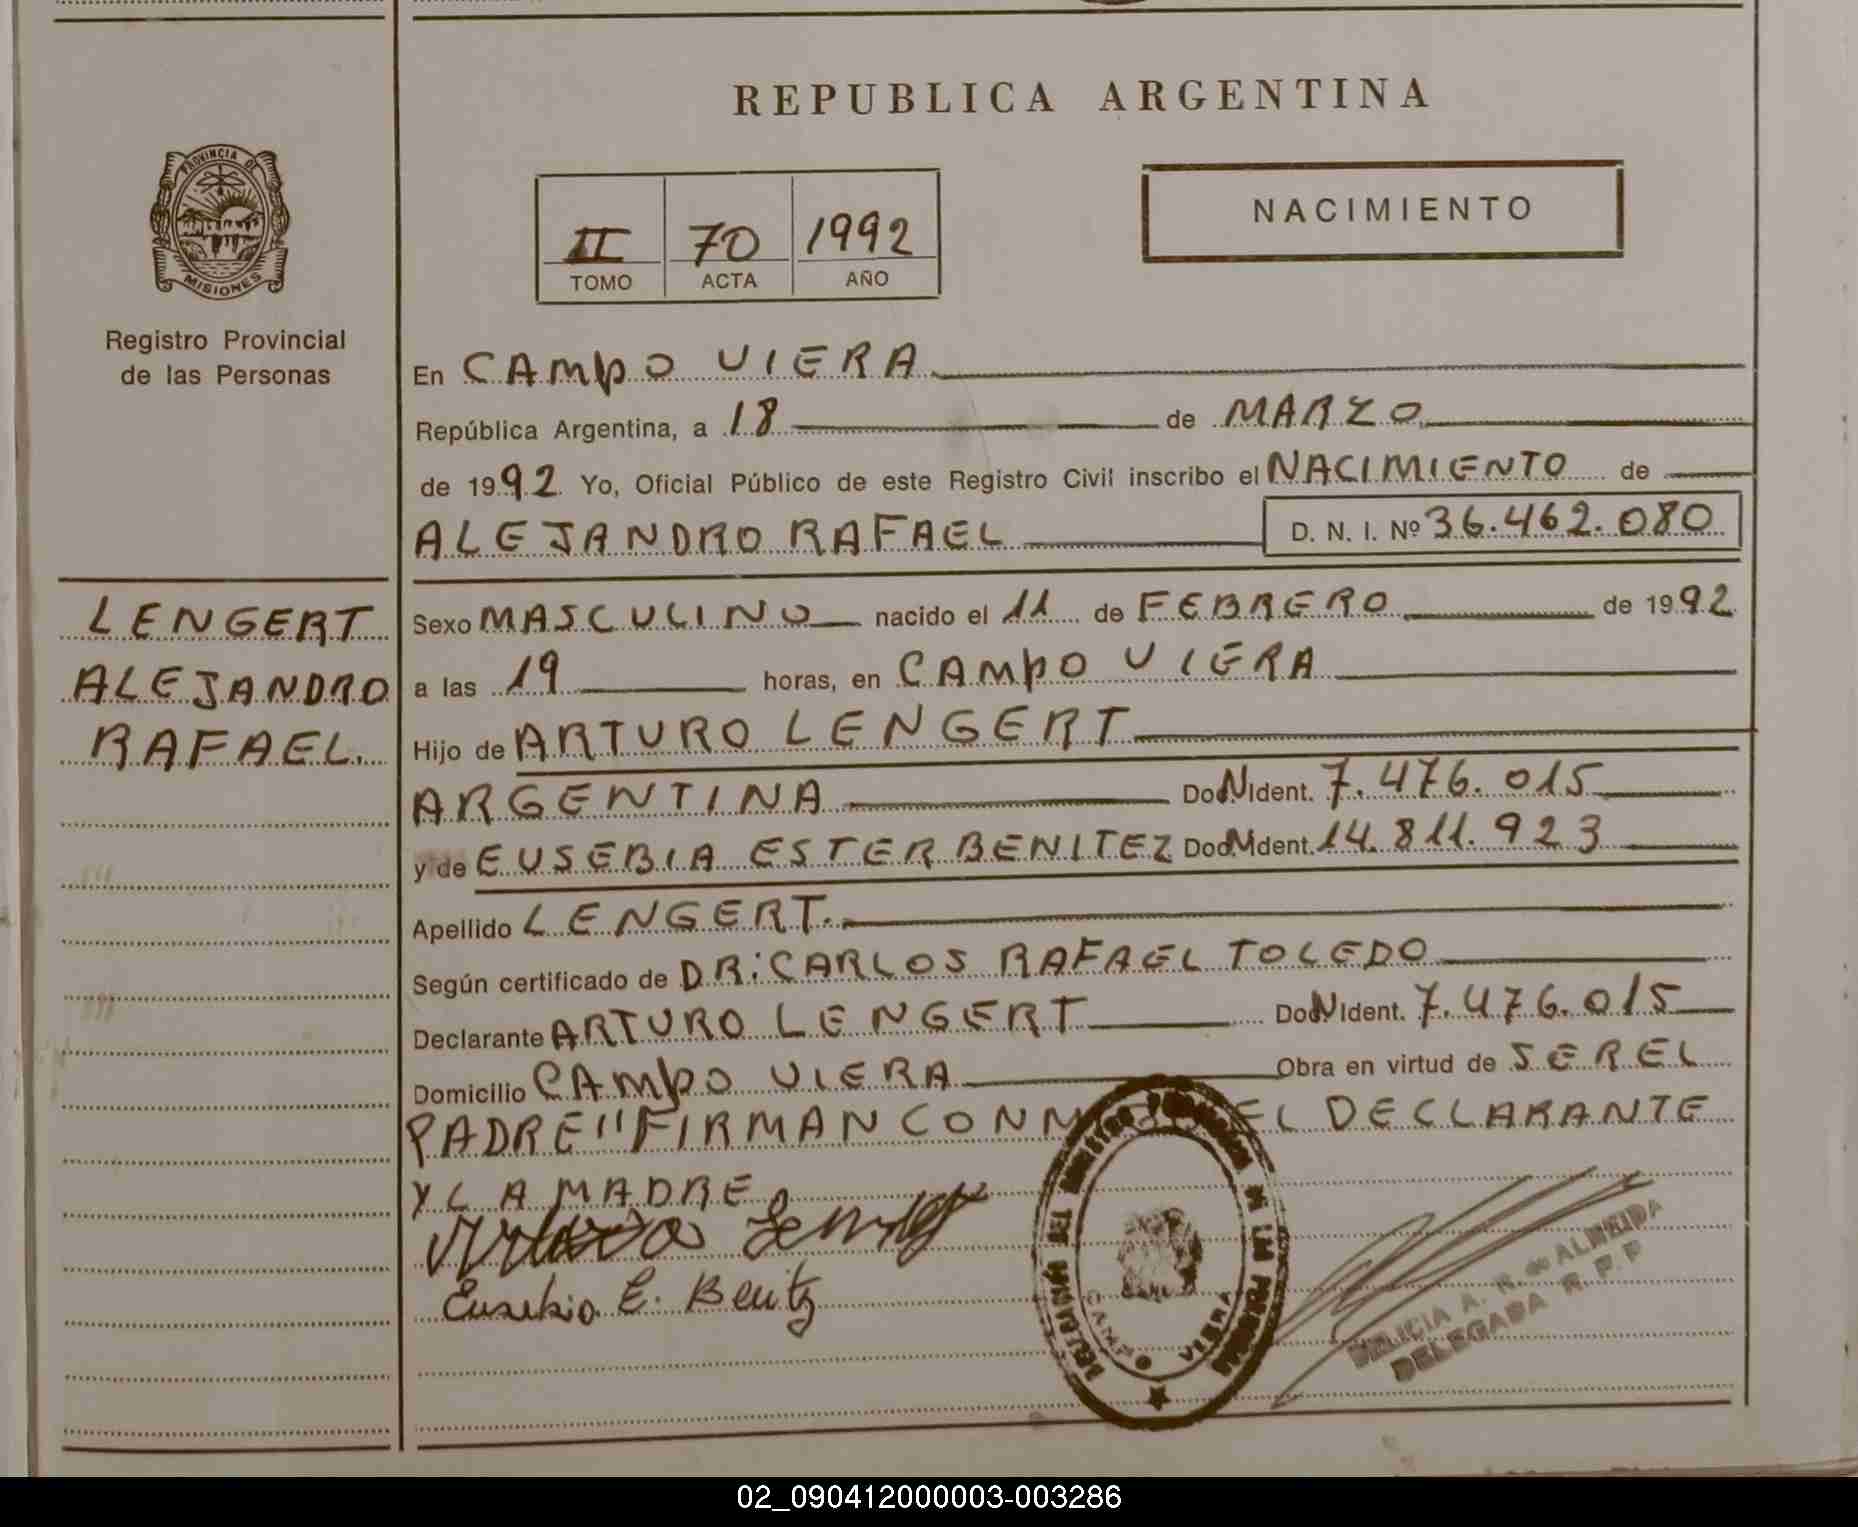 REPUBLICA ARGENTINA
PROVINCIA DE
MISIONES
Registro Provincial
de las Personas
II 70 1992
TOMO ACTA AÑO
NACIMIENTO
En CAMPO VIERA
República Argentina, a 18 de MARZO
de 1992 Yo, Oficial Público de este Registro Civil inscribo el NACIMIENTO de
ALEJANDRO RAFAEL D. N. I. Nº 36.462.080
LENGERT
ALEJANDRO
RAFAEL.
Sexo MASCULINO nacido el 11 de FEBRERO de 1992
a las 19 horas, en CAMPO VIERA
Hijo de ARTURO LENGERT
ARGENTINA Doc.N.Ident. 7.476.015
y de EUSEBIA ESTER BENITEZ Doc.N.Ident. 14.811.923
Apellido LENGERT.
Según certificado de DR: CARLOS RAFAEL TOLEDO
Declarante ARTURO LENGERT Doc.N.Ident. 7.476.015
Domicilio CAMPO VIERA Obra en virtud de SER EL
PADRE" FIRMAN CONMIGO EL DECLARANTE
Y LA MADRE
Eusebia E. Benitz
CAMPO VIERA
A. R. de ALMEIDA
DELEGADA R. P. P
02_090412000003-003286